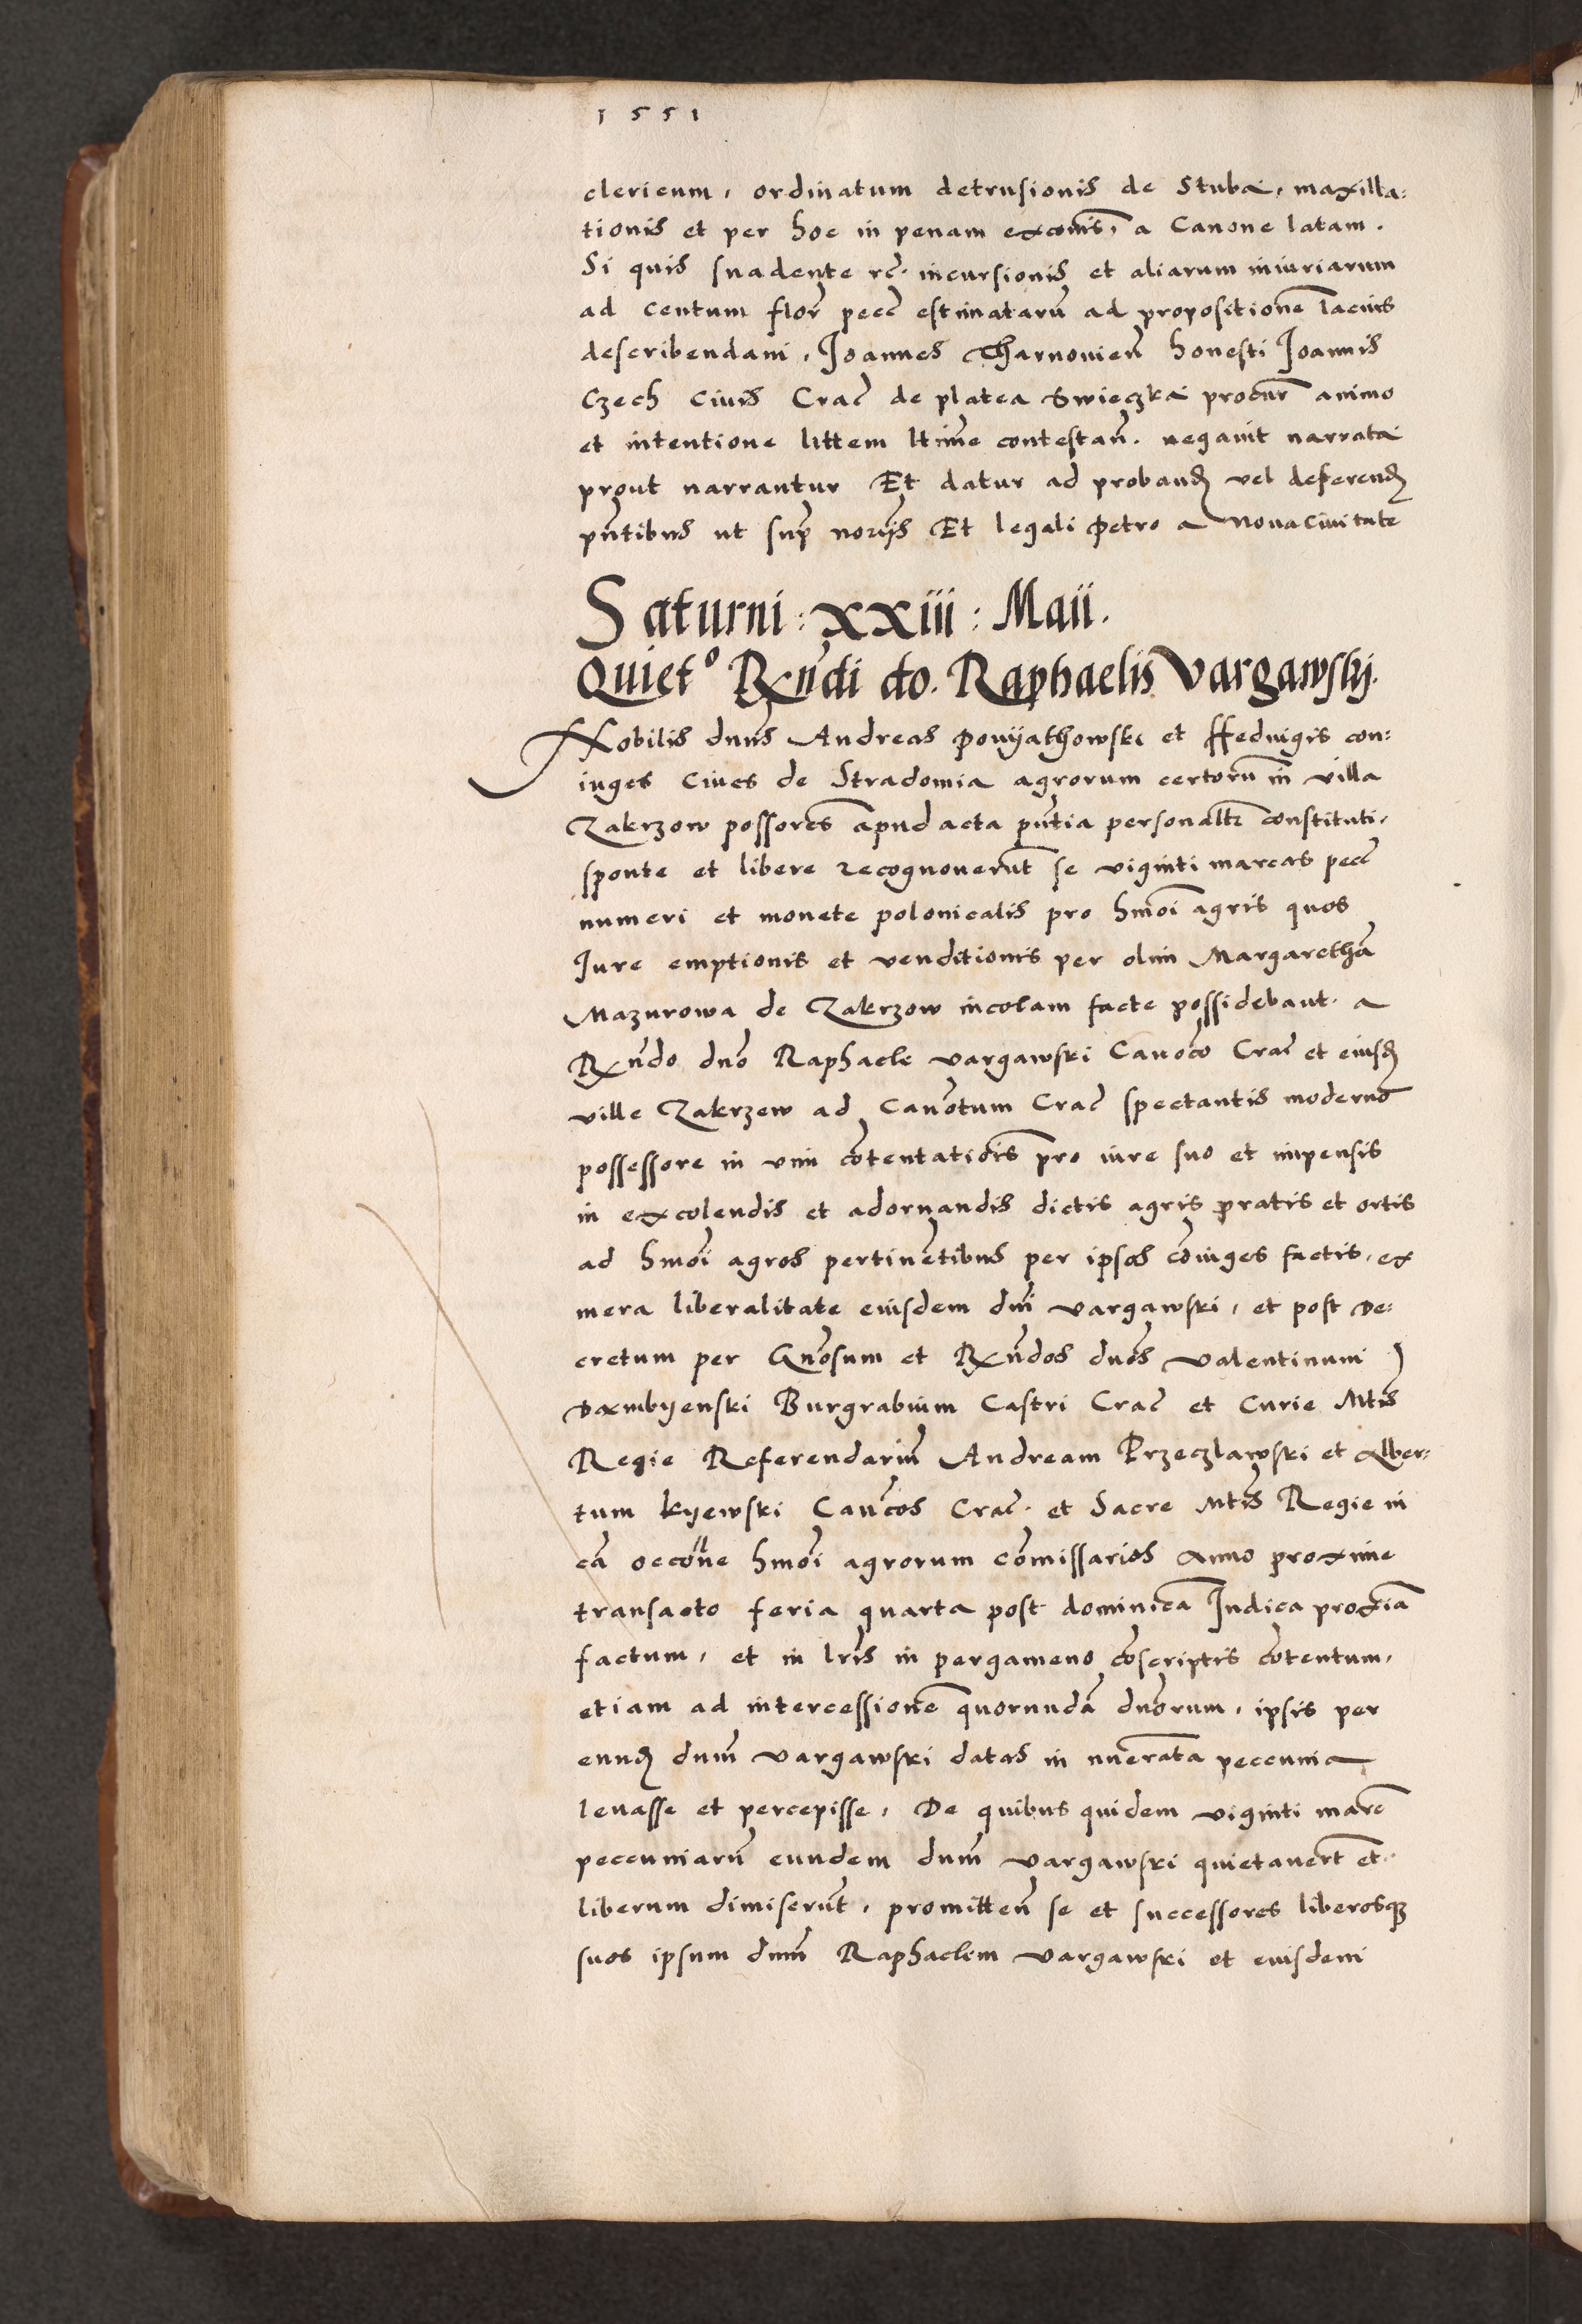 1551
clericum, ordinatum detrusionis de Stuba, maxilla:
tionis et per hoc in penam excoīs, a Canone latam.
Si quis suadente rc̄. incursionis et aliarum iniuriarum
ad Centum flor̄ pecc̄ estimatarū ad propositionē lacius
describendam, Joannes Tharnovień honesti Joannis
Czech Civis Crac̄ de platea Swieczka procur̄ animo
et intentione littem ltime contestań. negavit narrata
prout narrantur Et datur ad proband vel deferend
pn̄tibus ut sup̄ norijs Et legali Petro a Nova Civitate
Saturni : xxiii : Maii.
Quiet° Rn̄di do. Raphaelis Vargawskj.
Nobilis dnūs Andreas Povyathowski et Hedvigis con:
iuges Cives de Stradomia agrorum certorū in villa
Zakrzow possores apud acta pn̄tia personaltr constituti,
sponte et libere recognoverūt se viginti marcas pecc̄
numeri et monete polonicalis pro hmōi agris quos
Jure emptionis et venditionis per olim Margarethā
Mazurowa de Zakrzow incolam facte possidebant. a
Rn̄do dnō Raphaele Vargawski Canōco Crac̄ et eiusd
ville Zakrzew ad Canōtum Crac̄ spectantis modernō
possessore in vim cōtentatiōis pro iure suo et impensis
in excolendis et adornandis dictis agris pratis et ortis
ad hmōi agros pertinētibus per ipsos cōiuges factis, ex
mera liberalitate eiusdem dnī Vargawski, et post De:
cretum per Gnōsum et Rn̄dos dnōs Valentinum
Dembyenski Burgrabium Castri Crac̄ et Curie Mtis
Regie Referendariū Andream Przeczlawski et Alber:
tum Kyewski Cancos Crac̄. et Sacre Mtis Regie in
cā occōne hmōi agrorum Cōmissarios Anno proxime
transacto feria quarta post dominicā Judica proxiā
factum, et in lris in pergameno cōscriptis cōtentum,
etiam ad intercessionē quorundā dnōrum, ipsis per
eund dnm̄ Vargawski datas in nuērata peccunia
levasse et percepisse, De quibus quidem viginti marc̄
peccuniarū eundem dnm̄ Vargawski quietavert̄ et
liberum dimiserūt, promitteń se et successores liberosq
suos ipsum dnm̄ Raphaelem Vargawski et eiusdem